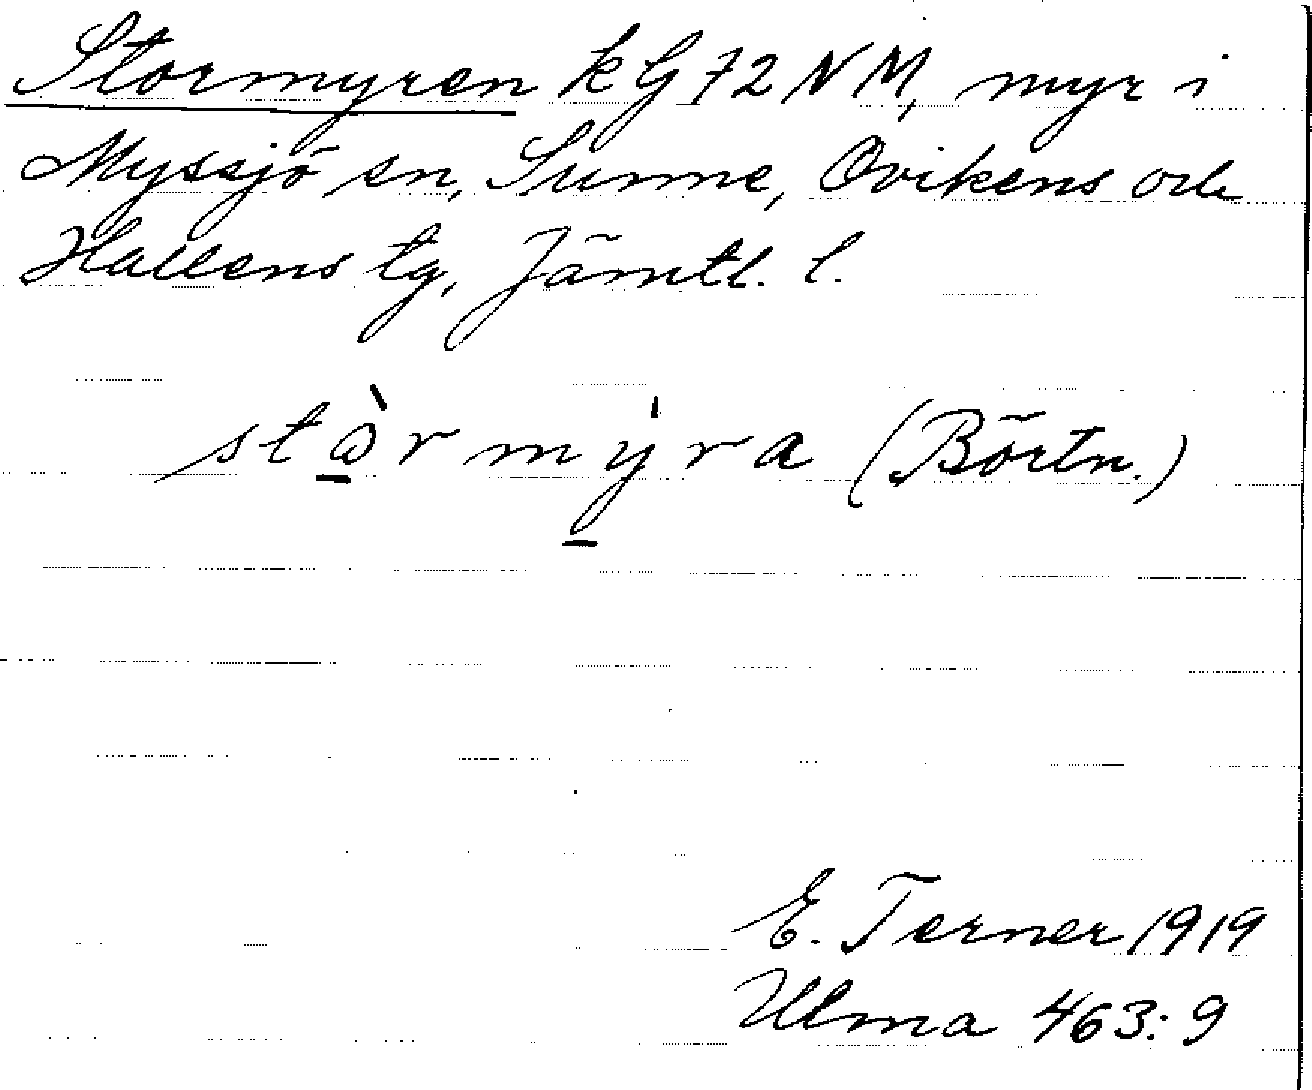 Stormyren kG 72 NM, myr i
Myssjö sn, Sunne, Ovikens och
Hallens tg, Jämtl. l.
stòrmýra (Börtn.)
E. Terner 1919
Ulma 463:9